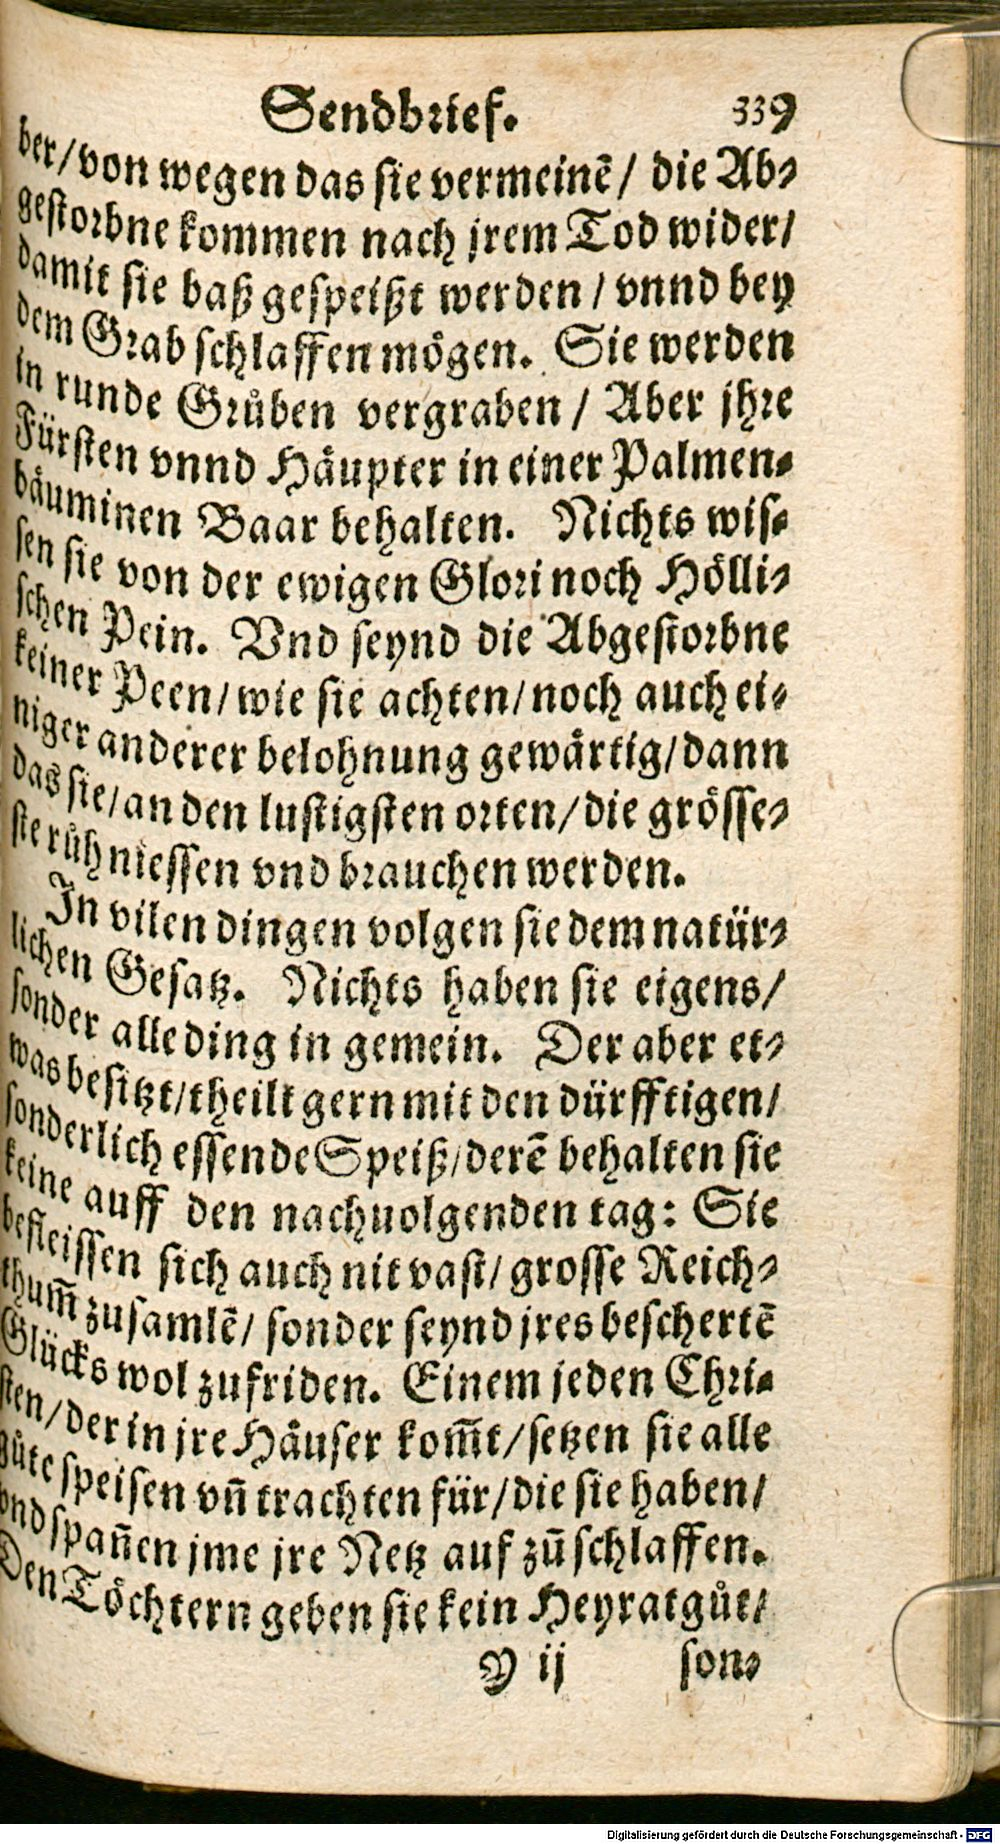 Sendbrief. 339
ber/von wegen das sie vermeinē/ die Ab⸗
gestorbne kommen nach jrem Tod wider/
damit sie baß gespeißt werden / vnnd bey
dem Grab schlaffen mögen. Sie werden
in runde Grůben vergraben / Aber jhre
Fürsten vnnd Häupter in einer Palmen⸗
bäuminen Baar behalten. Nichts wis⸗
sen sie von der ewigen Glori noch Hölli⸗
schen Pein. Vnd seynd die Abgestorbne
keiner Peen/wie sie achten/noch auch ei⸗
niger anderer belohnung gewärtig/dann
das sie/an den lustigsten orten/die grösse⸗
ste růh niessen vnd brauchen werden.
In vilen dingen volgen sie dem natür⸗
lichen Gesatz. Nichts haben sie eigens/
sonder alle ding in gemein. Der aber et⸗
was besitzt/theilt gern mit den dürfftigen/
sonderlich essende Speiß/derē behalten sie
keine auff den nachuolgenden tag: Sie
befleissen sich auch nit vast/grosse Reich⸗
thum̄ zusamlē/ sonder seynd jres beschertē
Glücks wol zufriden. Einem jeden Chri⸗
sten/der in jre Häuser kom̄t/setzen sie alle
gůte speisen vn̄ trachten für/die sie haben/
vnd span̄en jme jre Netz auf zů schlaffen.
Den Töchtern geben sie kein Heyratgůt/
Y ij son⸗
Digitalisierung gefördert durch die Deutsche Forschungsgemeinschaft - DFG